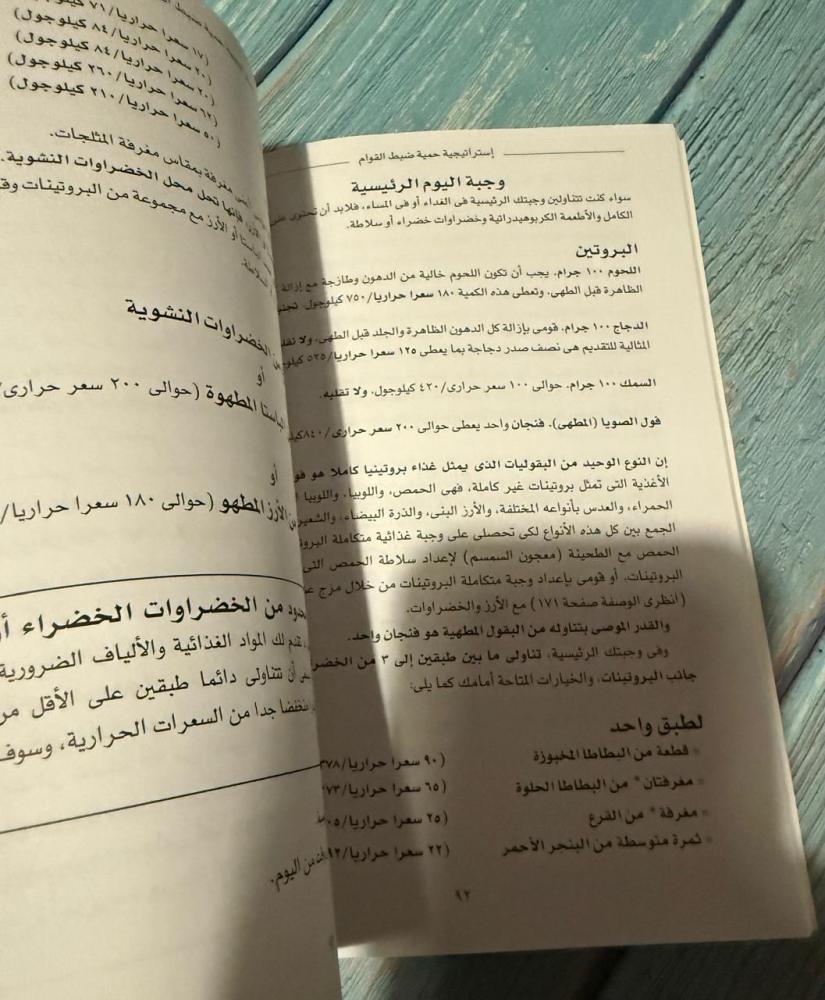 إستراتيجية حمية ضبط القوام
وجبة اليوم الرئيسية
سواء كنت تتناولين وجبتك الرئيسية فى الغداء أو فى المساء، فلابد أن تحتوى على
الكامل والأطعمة الكربوهيدراتية وخضراوات خضراء أو سلاطة.
البروتين
اللحوم ١٠٠ جرام. يجب أن تكون اللحوم خالية من الدهون وطازجة مع إزالة
الظاهرة قبل الطهى. وتعطى هذه الكمية ١٨٠ سعرا حراريا/٧٥٠ كيلوجول.
الدجاج ١٠٠ جرام. قومى بإزالة كل الدهون الظاهرة والجلد قبل الطهى. ولا
المثالية للتقديم هى نصف صدر دجاجة بما يعطى ١٢٥ سعرا حراريا/٥٢٥
السمك ١٠٠ جرام. حوالى ١٠٠ سعر حرارى/٤٢٠ كيلوجول. ولا تقليه.
فول الصويا (المطهى). فنجان واحد يعطى حوالى ٢٠٠ سعر حرارى/٨٤٠
إن النوع الوحيد من البقوليات الذى يمثل غذاء بروتينيا كاملا هو
الأغذية التى تمثل بروتينات غير كاملة، فهى الحمص، واللوبيا، واللوبيا
الحمراء، والعدس بأنواعه المختلفة، والأرز البنى، والذرة البيضاء، والشعير
الجمع بين كل هذه الأنواع لكى تحصلى على وجبة غذائية متكاملة
الحمص مع الطحينة (معجون السمسم) لإعداد سلاطة الحمص التى
البروتينات. أو قومى بإعداد وجبة متكاملة البروتينات من خلال مزج
(انظرى الوصفة صفحة ١٧١) مع الأرز والخضراوات.
والقدر الموصى بتناوله من البقول المطهية هو فنجان واحد.
وفى وجبتك الرئيسية، تناولى ما بين طبقين إلى ٣ من
جانب البروتينات. والخيارات المتاحة أمامك كما يلى:
لطبق واحد
قطعة من البطاطا المخبوزة (٩٠ سعرا حراريا/
مغرفتان * من البطاطا الحلوة (٦٥ سعرا حراريا/
مغرفة * من القرع (٢٥ سعرا حراريا/
ثمرة متوسطة من البنجر الأحمر (٢٢ سعرا حراريا/
٩٢
(١٧ سعرا حراريا/٧١
(٢٠ سعرا حراريا/٨٤ كيلوجول)
(٢٠ سعرا حراريا/٨٤ كيلوجول)
(٦٢ سعرا حراريا/٢٦٠ كيلوجول)
(٥٠ سعرا حراريا/٢١٠ كيلوجول)
مغرفة بمقاس مغرفة المثلجات.
فإنها تحل محل الخضراوات النشوية.
أو الأرز مع مجموعة من البروتينات
السلاطة.
الخضراوات النشوية
أو
الباستا المطهوة (حوالى ٢٠٠ سعر حرارى/
أو
الأرز المطهو (حوالى ١٨٠ سعرا حراريا/
من الخضراوات الخضراء
تقدم لك المواد الغذائية والألياف الضرورية
أن تتناولى دائما طبقين على الأقل
جدا من السعرات الحرارية، وسوف
من اليوم.